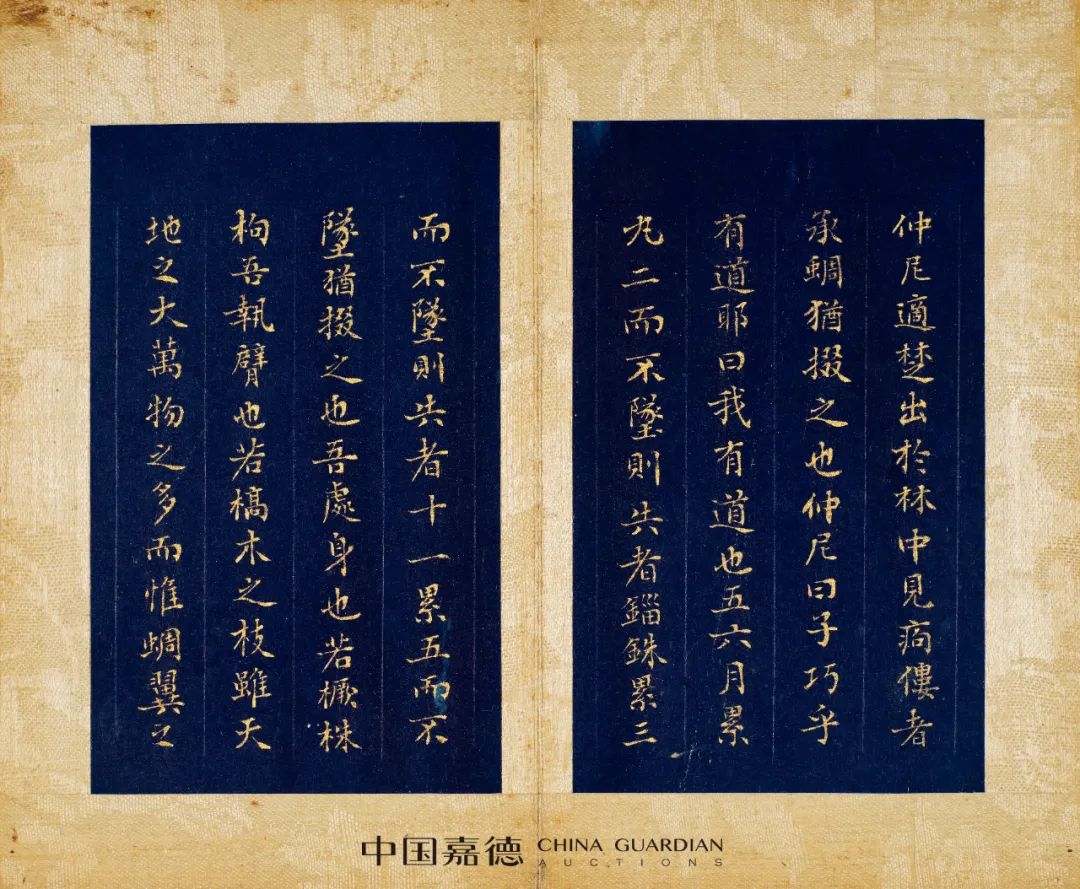 仲尼適楚出於林中見痀僂者
承蜩猶掇之也仲尼曰子巧乎
有道耶曰我有道也五六月累
丸二而不墜則失者錙銖累三
而不墜則失者十一累五而不
墜猶掇之也吾處身也若橛株
枸吾執臂也若槁木之枝雖天
地之大萬物之多而惟蜩翼之
中国嘉德 CHINA GUARDIAN
AUCTIONS